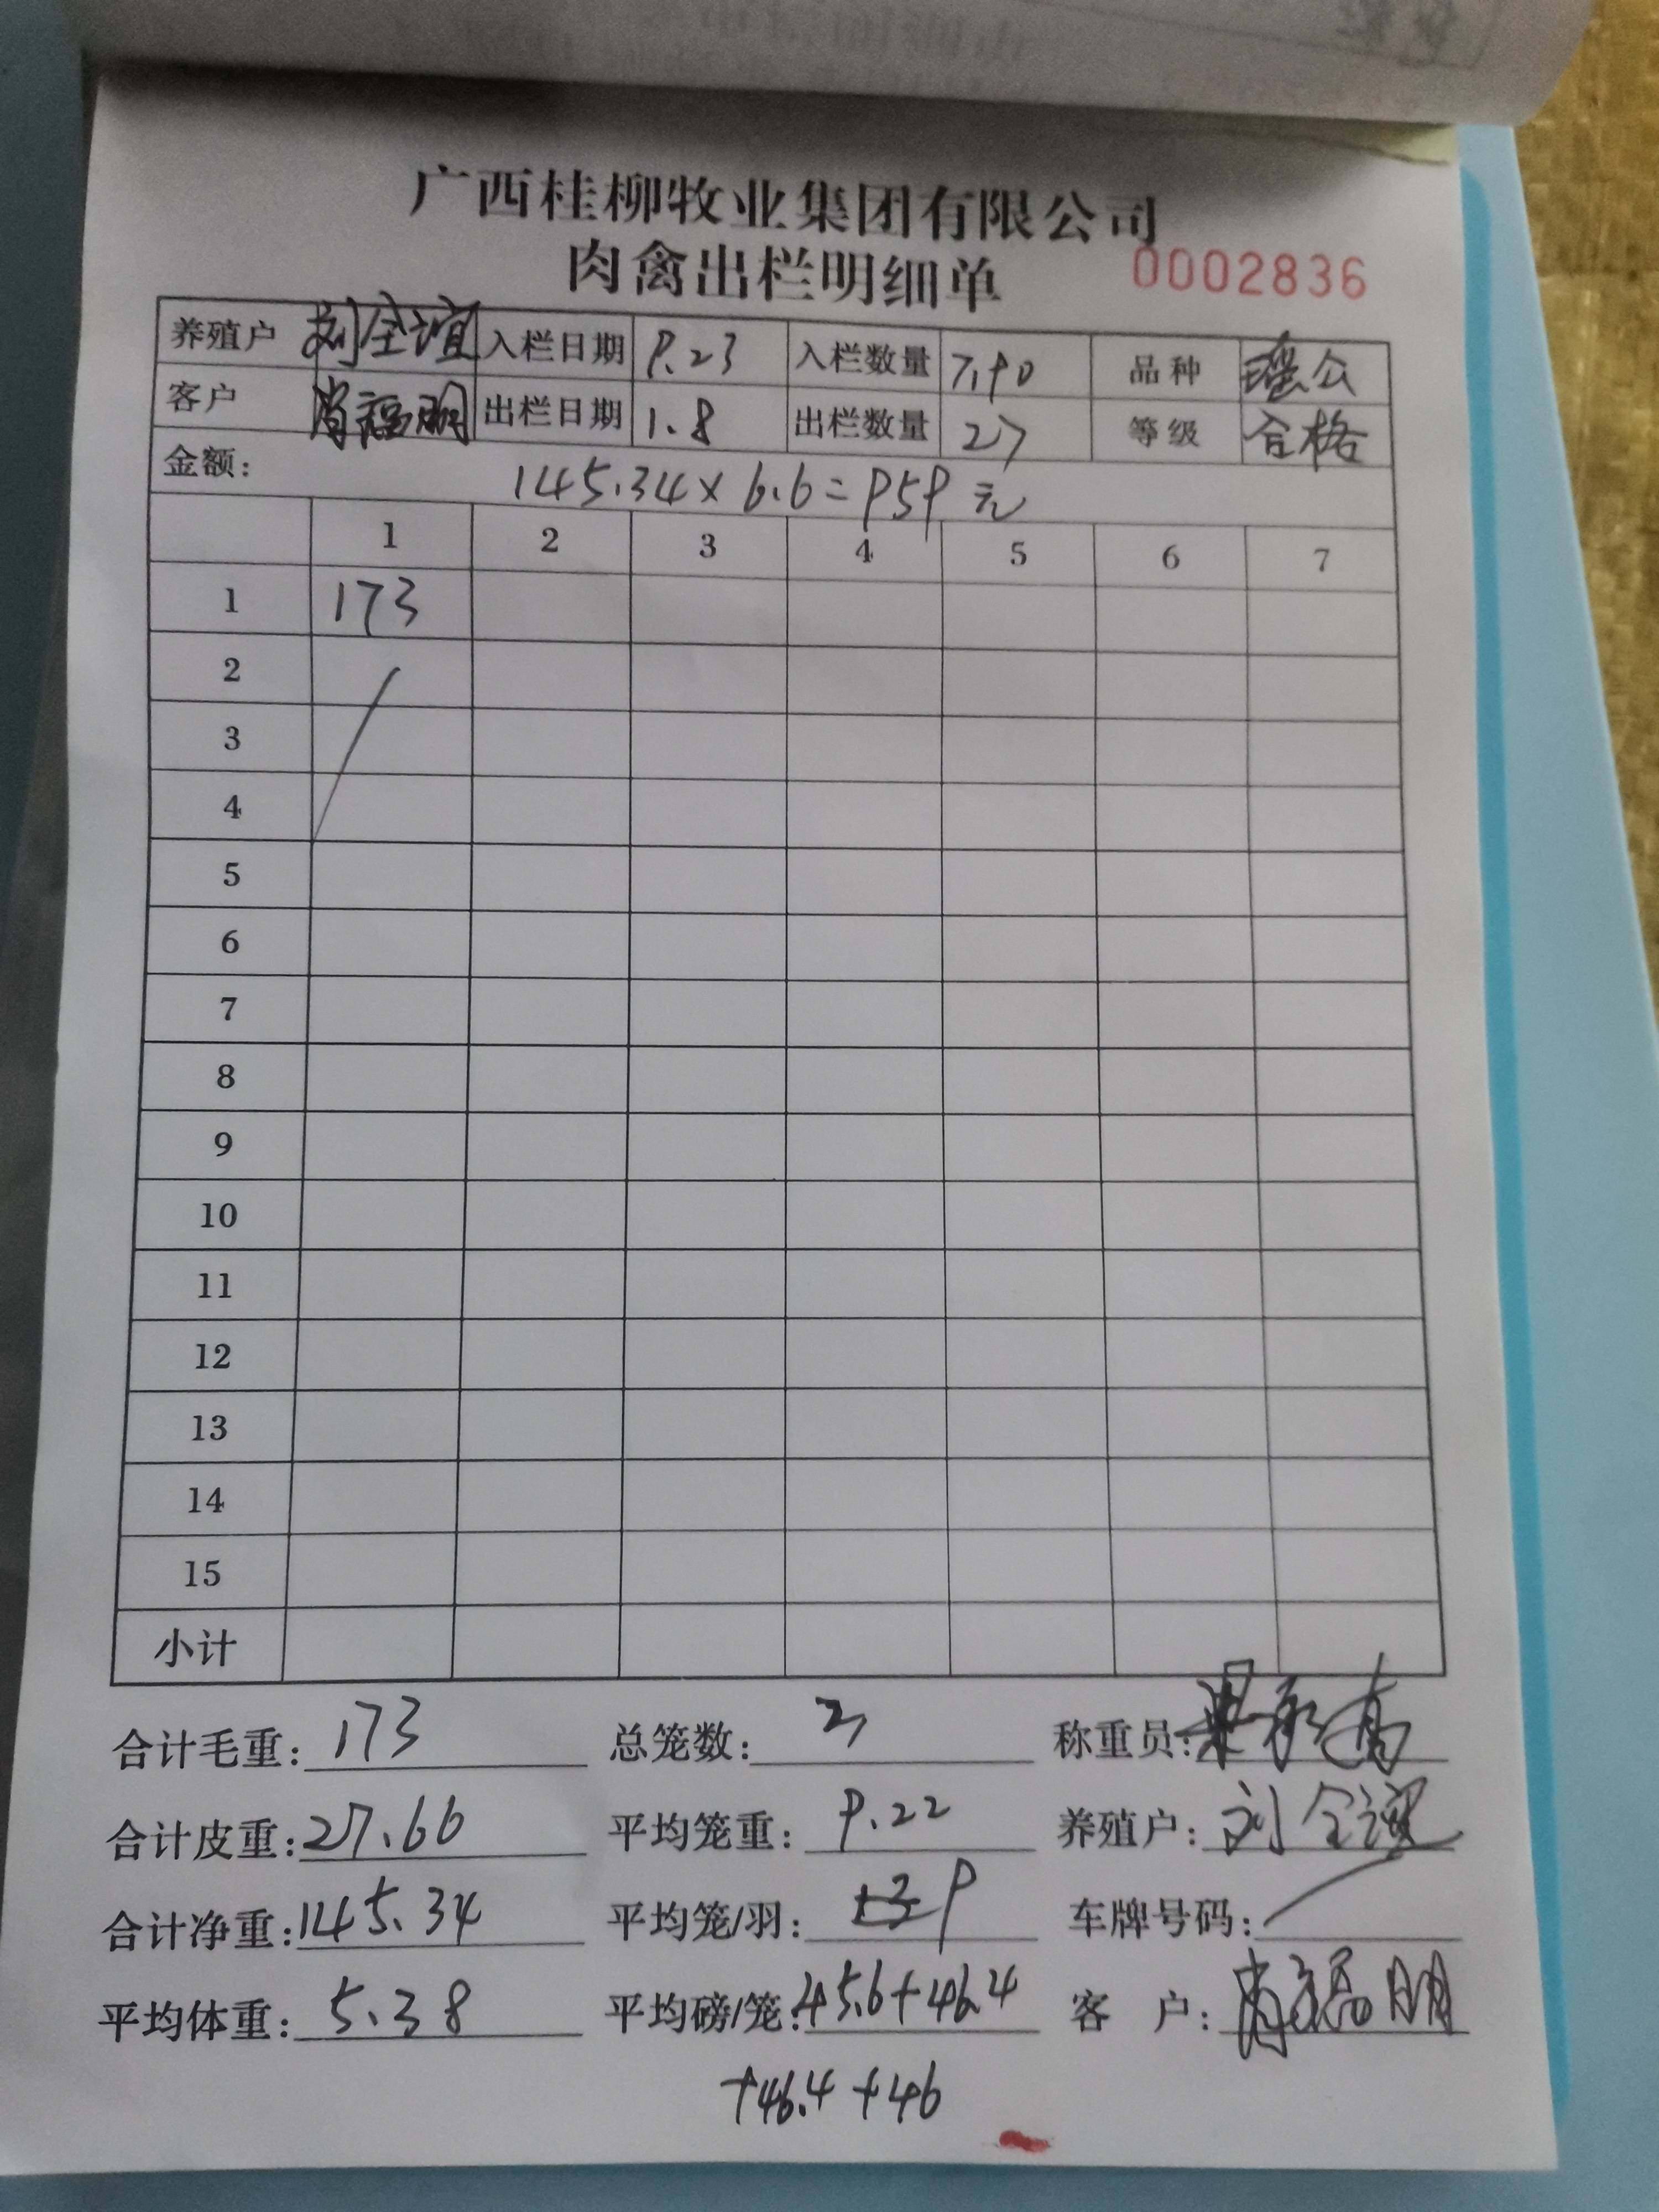 广西桂柳牧业集团有限公司
肉禽出栏明细单 0002836
养殖户 刘全谊 入栏日期 9.23 入栏数量 7190 品种 瑶公
客户 肖福明 出栏日期 1.8 出栏数量 27 等级 合格
金额: 145.34×6.6=959元
1 2 3 4 5 6 7
1 173
2
3
4
5
6
7
8
9
10
11
12
13
14
15
小计
合计毛重: 173 总笼数: 3 称重员:
合计皮重: 27.66 平均笼重: 9.22 养殖户: 刘全谊
合计净重: 145.34 平均笼/羽: 9 车牌号码:
平均体重: 5.38 平均磅/笼: 45.6+46.4 客 户: 肖福明
+46.4+46